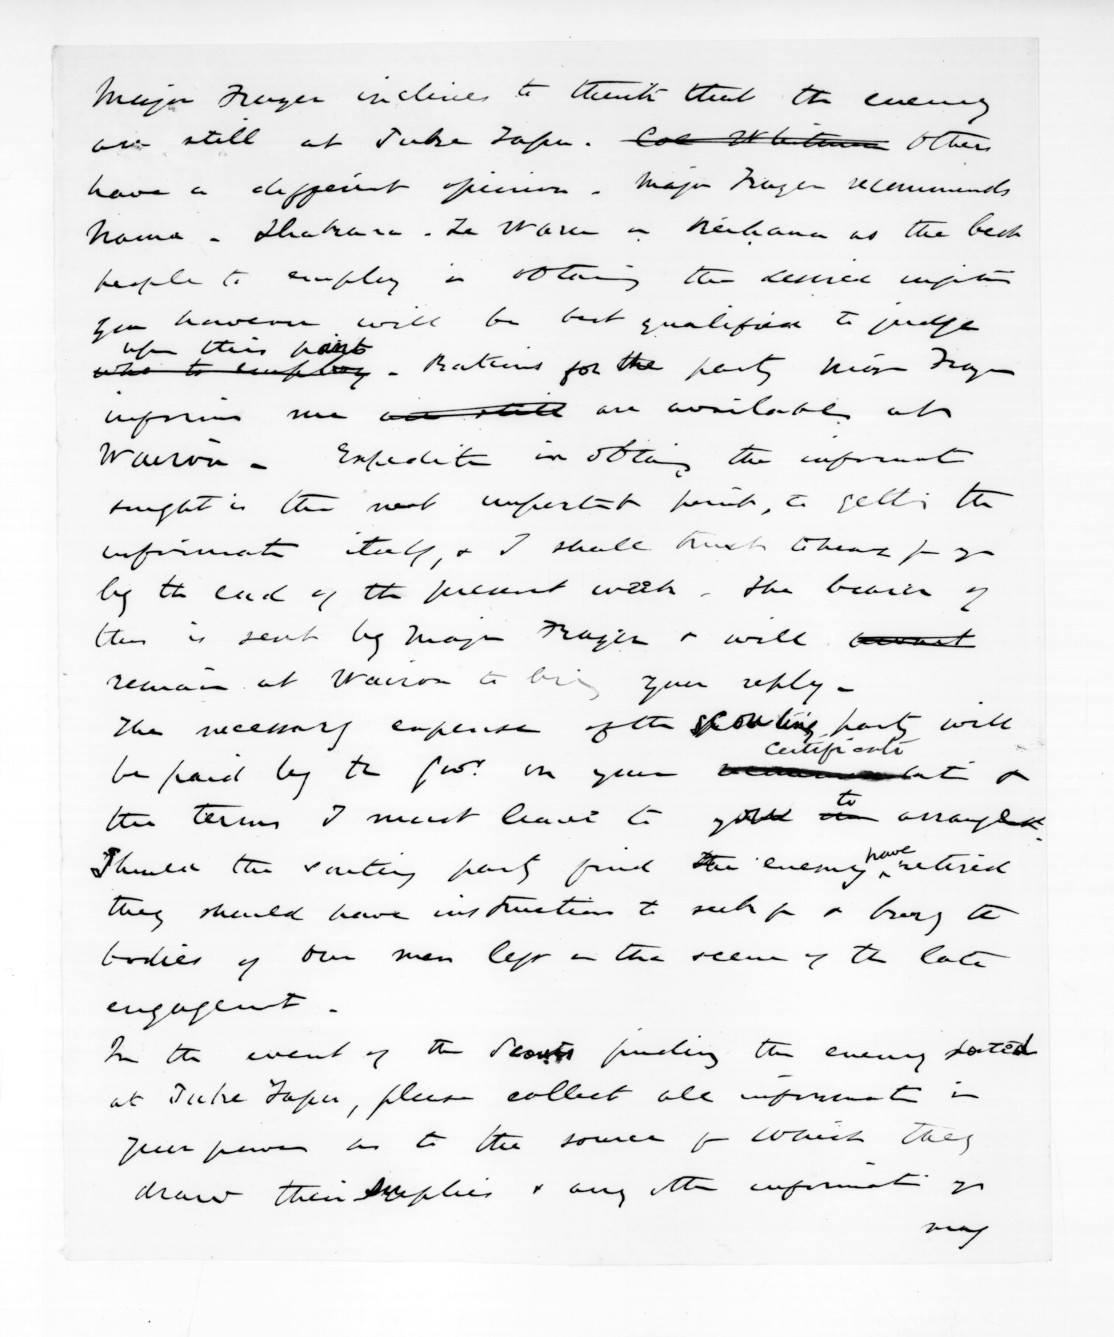 Major Frazer inclines to think that the enemy
are still at Puke Tapu. Col Whitmore Others
have a different opinion. Major Frazer recommends
Hama - Ihakara - Te Waru or Reihana as the best
people to employ in obtaining the desired
you however will be best qualified to judge
upon this point
who to employ. Rations for the party Major Frazer
informs me are still are available at
Wairoa - Expedite in obtaing the informat
sought is the next importt point, to getti the
informatn itself, & I shall trust to hear fr yo
by the end of the present week. The bearer of
this is sent by Major Frazer & will await
remain at Wairoa to bring your reply -
The necessary expense of the scouting party will
certificate
be paid by the Govt on your &
the terms I must leave to you to arrange.
Should the scouting party find the enemy have retired
they should have instructions to seek for & bury the
bodies of our men left on the scene of the late
engagemt.
In the event of the Scouts finding the enemy located
at Puke Tapu, please collect all informatn in
your power as to the source fr which they
draw their supplies & any other informatn yo
may